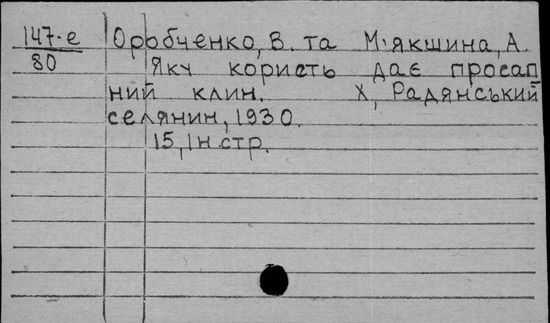 147-е Оробченко, В. та М'якшина, А.
80 Яку користь дає просап
ний клин. Х, Радянський
селянин, 1930.
15, 1н стр.